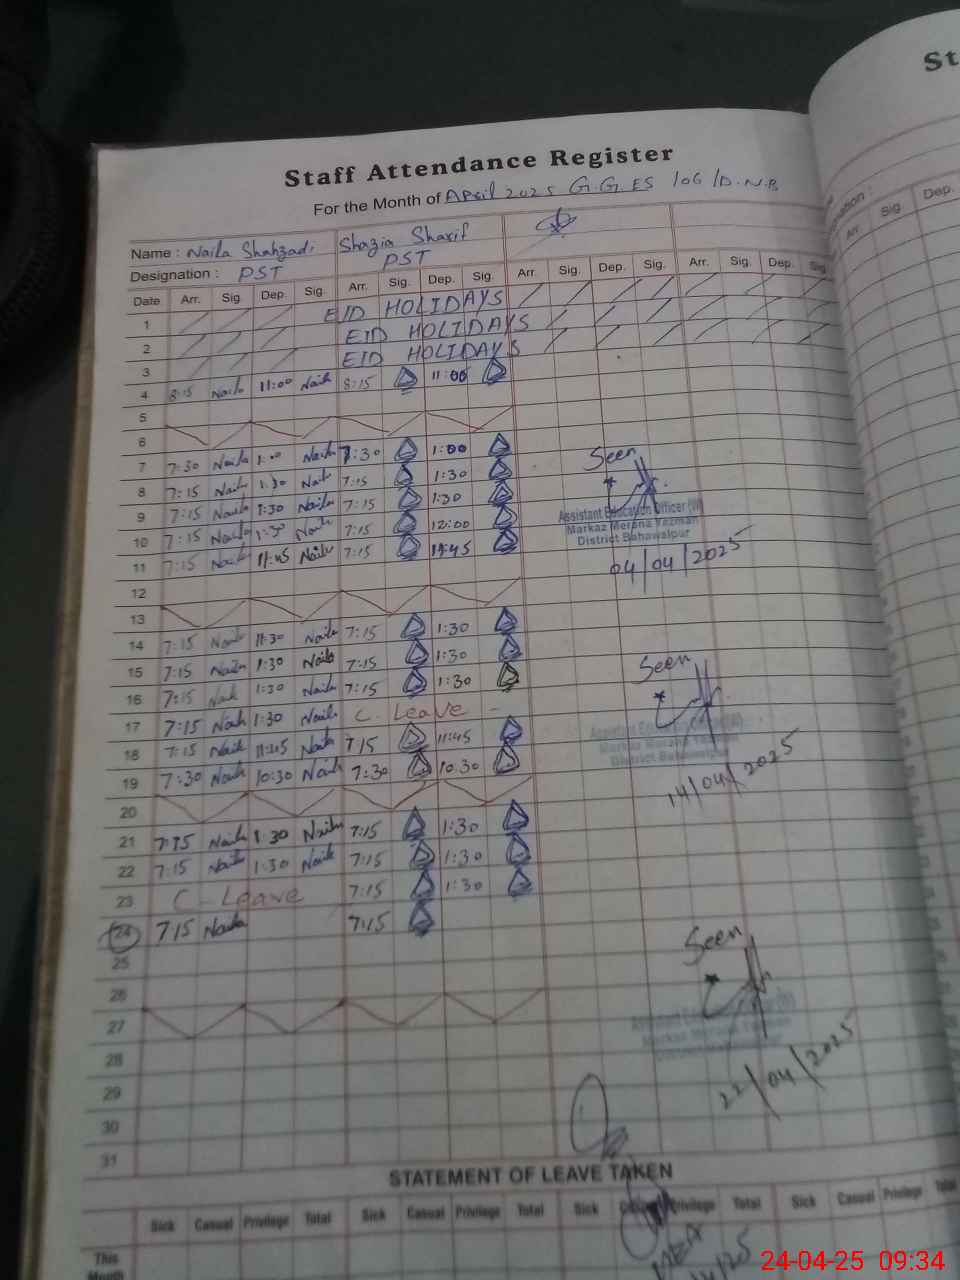 Staff Attendance Register
For the Month of April 2025 G.G.ES 106/D.N.B
Name : Naila Shahzadi Shazia Sharif
Designation : PST PST
Date Arr. Sig. Dep. Sig. Arr. Sig. Dep. Sig. Arr. Sig. Dep. Sig. Arr. Sig. Dep. Sig.
1 EID HOLIDAYS
2 EID HOLIDAYS
3 EID HOLIDAYS
4 8:15 Naila 11:00 Naila 8:15 11:00
5
6
7 7:30 Naila 1:00 Naila 7:30 1:00
8 7:15 Naila 1:30 Naila 7:15 1:30
9 7:15 Naila 1:30 Naila 7:15 1:30
10 7:15 Naila 1:30 Naila 7:15 12:00
11 7:15 Naila 11:45 Naila 7:15 11:45
12
13
14 7:15 Naila 11:30 Naila 7:15 1:30
15 7:15 Naila 1:30 Naila 7:15 1:30
16 7:15 Naila 1:30 Naila 7:15 1:30
17 7:15 Naila 1:30 Naila C. Leave
18 7:15 Naila 11:45 Naila 7:15 11:45
19 7:30 Naila 10:30 Naila 7:30 10:30
20
21 7:15 Naila 1:30 Naila 7:15 1:30
22 7:15 Naila 1:30 Naila 7:15 1:30
23 C - Leave 7:15 1:30
24 7:15 Naila 7:15
25
26
27
28
29
30
31
Seen
Assistant Education Officer (W)
Markaz Merana Yazman
District Bahawalpur
04/04/2025
Seen
Assistant Education Officer (W)
Markaz Merana Yazman
District Bahawalpur
14/04/2025
Seen
Assistant Education Officer (W)
Markaz Merana Yazman
District Bahawalpur
22/04/2025
STATEMENT OF LEAVE TAKEN
Sick Casual Privilege Total Sick Casual Privilege Total Sick Privilege Total Sick Casual Privilege Total
This
Month
Arr. Sig. Dep.
24-04-25 09:34